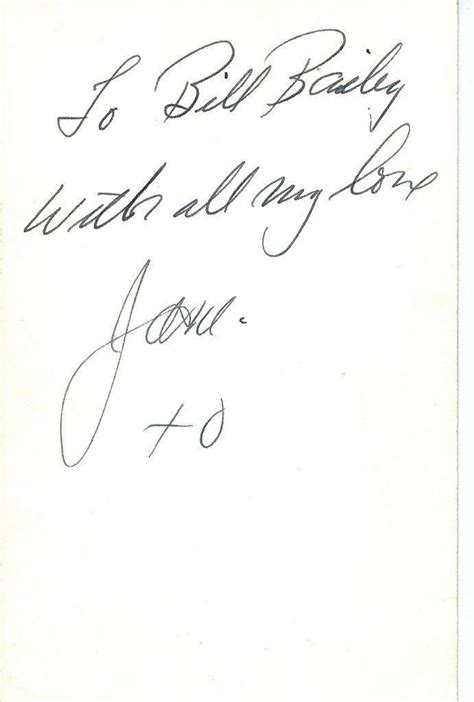 To Bill Bailey
With all my love
Jane.
XO